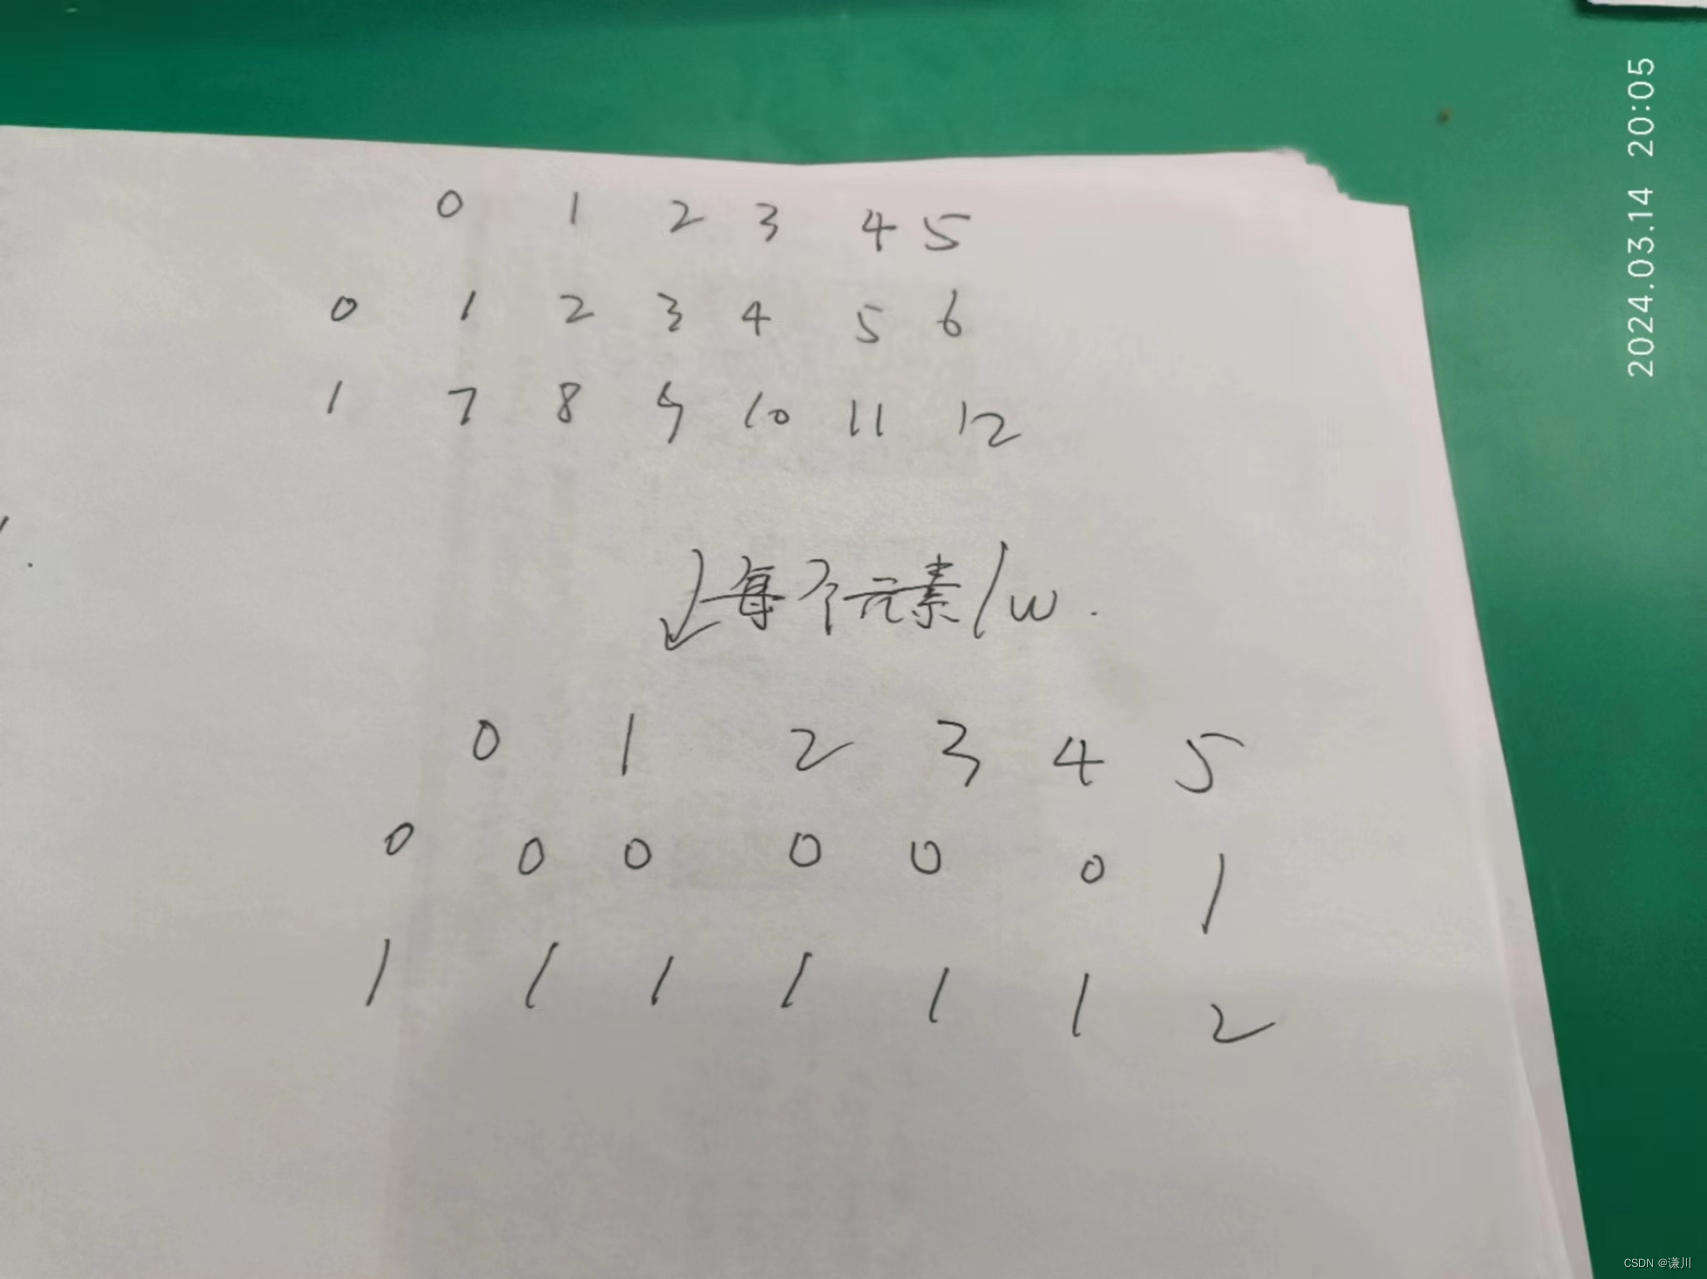 0 1 2 3 4 5
0 1 2 3 4 5 6
1 7 8 9 10 11 12
每个元素/w.
0 1 2 3 4 5
0 0 0 0 0 0 1
1 1 1 1 1 1 2
2024.03.14 20:05
CSDN @谦川